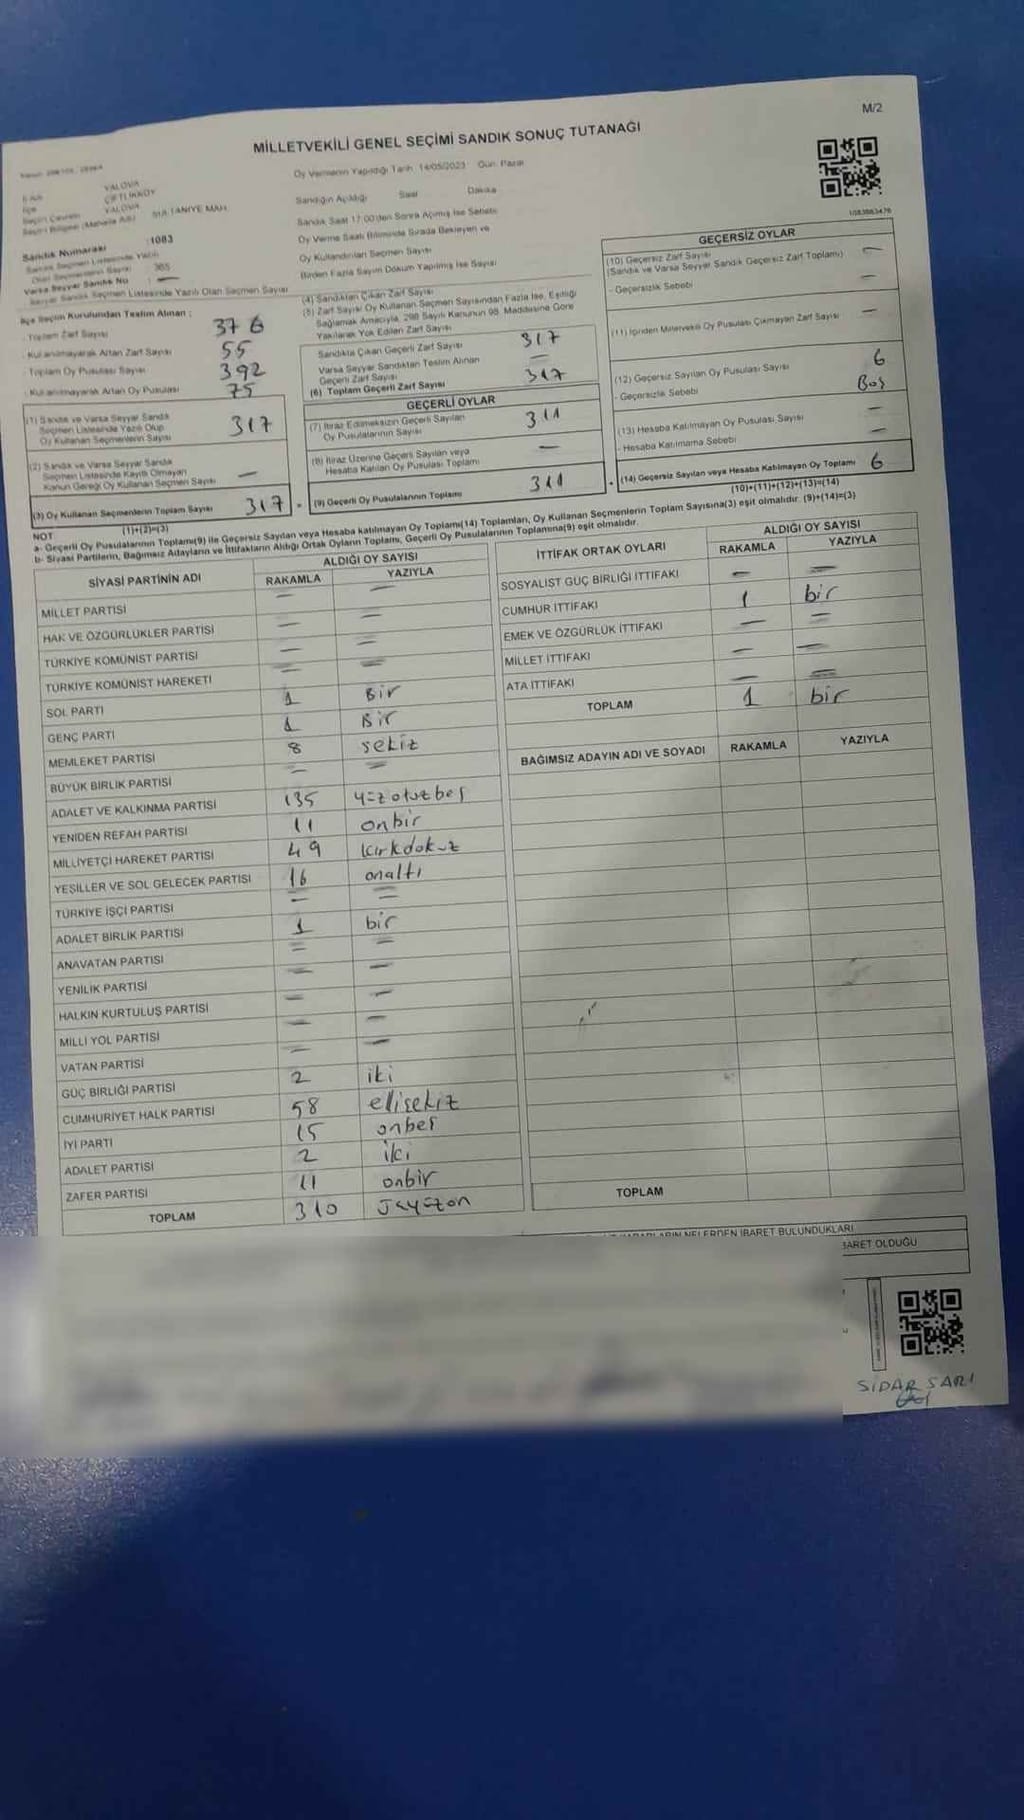 M/2
MİLLETVEKİLİ GENEL SEÇİMİ SANDIK SONUÇ TUTANAĞI
Oy Vermenin Yapıldığı Tarih 14/05/2023 Gün Pazar
YALOVA
İlçe ÇİFTLİKKÖY
Seçim Çevresi YALOVA
Seçim Bölgesi (Mahalle Adı)
Sandık Numarası :1083
Sandık Seçmen Listesinde Yazılı
Olan Seçmenlerin Sayısı 365
Varsa Seyyar Sandık No
Seyyar Sandık Seçmen Listesinde Yazılı Olan Seçmen Sayısı
Sandığın Açıldığı Saat Dakika
Sandık Saat 17:00'den Sonra Açılmış İse Sebebi
Oy Verme Saati Bitiminde Sırada Bekleyen ve
Oy Kullandırılan Seçmen Sayısı
Birden Fazla Sayım Döküm Yapılmış İse Sayısı
1083863476
İlçe Seçim Kurulundan Teslim Alınan :
- Toplam Zarf Sayısı 376
- Kullanılmayarak Artan Zarf Sayısı 55
- Toplam Oy Pusulası Sayısı 392
- Kullanılmayarak Artan Oy Pusulası 75
(1) Sandık ve Varsa Seyyar Sandık
Seçmen Listesinde Yazılı Olup
Oy Kullanan Seçmenlerin Sayısı 317
(2) Sandık ve Varsa Seyyar Sandık
Seçmen Listesinde Kayıtlı Olmayan
Kanun Gereği Oy Kullanan Seçmen Sayısı —
(3) Oy Kullanan Seçmenlerin Toplam Sayısı 317
(1)+(2)=(3)
(4) Sandıktan Çıkan Zarf Sayısı
(5) Zarf Sayısı Oy Kullanan Seçmen Sayısından Fazla İse, Eşitliği
Sağlamak Amacıyla, 298 Sayılı Kanunun 98. Maddesine Göre
Yakılarak Yok Edilen Zarf Sayısı
Sandıkta Çıkan Geçerli Zarf Sayısı 317
Varsa Seyyar Sandıktan Teslim Alınan
Geçerli Zarf Sayısı —
(6) Toplam Geçerli Zarf Sayısı 317
GEÇERLİ OYLAR
(7) İtiraz Edilmeksizin Geçerli Sayılan
Oy Pusulalarının Sayısı 311
(8) İtiraz Üzerine Geçerli Sayılan veya
Hesaba Katılan Oy Pusulası Toplamı —
(9) Geçerli Oy Pusulalarının Toplamı 311
GEÇERSİZ OYLAR
(10) Geçersiz Zarf Sayısı
(Sandık ve Varsa Seyyar Sandık Geçersiz Zarf Toplamı) —
- Geçersizlik Sebebi —
(11) İçinden Milletvekili Oy Pusulası Çıkmayan Zarf Sayısı —
(12) Geçersiz Sayılan Oy Pusulası Sayısı 6
- Geçersizlik Sebebi Boş
(13) Hesaba Katılmayan Oy Pusulası Sayısı —
- Hesaba Katılmama Sebebi —
(14) Geçersiz Sayılan veya Hesaba Katılmayan Oy Toplamı 6
(10)+(11)+(12)+(13)=(14)
NOT
a- Geçerli Oy Pusulalarının Toplamı(9) ile Geçersiz Sayılan veya Hesaba katılmayan Oy Toplamı(14) Toplamları, Oy Kullanan Seçmenlerin Toplam Sayısına(3) eşit olmalıdır. (9)+(14)=(3)
b- Siyasi Partilerin, Bağımsız Adayların ve İttifakların Aldığı Ortak Oyların Toplamı, Geçerli Oy Pusulalarının Toplamına(9) eşit olmalıdır.
SİYASİ PARTİNİN ADI ALDIĞI OY SAYISI
RAKAMLA YAZIYLA
MİLLET PARTİSİ — —
HAK VE ÖZGÜRLÜKLER PARTİSİ — —
TÜRKİYE KOMÜNİST PARTİSİ — —
TÜRKİYE KOMÜNİST HAREKETİ — —
SOL PARTİ 1 Bir
GENÇ PARTİ 1 Bir
MEMLEKET PARTİSİ 8 sekiz
BÜYÜK BİRLİK PARTİSİ — —
ADALET VE KALKINMA PARTİSİ 135 yüzotuzbeş
YENİDEN REFAH PARTİSİ 11 onbir
MİLLİYETÇİ HAREKET PARTİSİ 49 kırkdokuz
YEŞİLLER VE SOL GELECEK PARTİSİ 16 onaltı
TÜRKİYE İŞÇİ PARTİSİ — —
ADALET BİRLİK PARTİSİ 1 bir
ANAVATAN PARTİSİ — —
YENİLİK PARTİSİ — —
HALKIN KURTULUŞ PARTİSİ — —
MİLLİ YOL PARTİSİ — —
VATAN PARTİSİ — —
GÜÇ BİRLİĞİ PARTİSİ 2 iki
CUMHURİYET HALK PARTİSİ 58 ellisekiz
İYİ PARTİ 15 onbeş
ADALET PARTİSİ 2 iki
ZAFER PARTİSİ 11 onbir
TOPLAM 310 üçyüzon
İTTİFAK ORTAK OYLARI ALDIĞI OY SAYISI
RAKAMLA YAZIYLA
SOSYALİST GÜÇ BİRLİĞİ İTTİFAKI — —
CUMHUR İTTİFAKI 1 bir
EMEK VE ÖZGÜRLÜK İTTİFAKI — —
MİLLET İTTİFAKI — —
ATA İTTİFAKI — —
TOPLAM 1 bir
BAĞIMSIZ ADAYIN ADI VE SOYADI RAKAMLA YAZIYLA
TOPLAM
NELERDEN İBARET BULUNDUKLARI
BARET OLDUĞU
SİDAR SARI